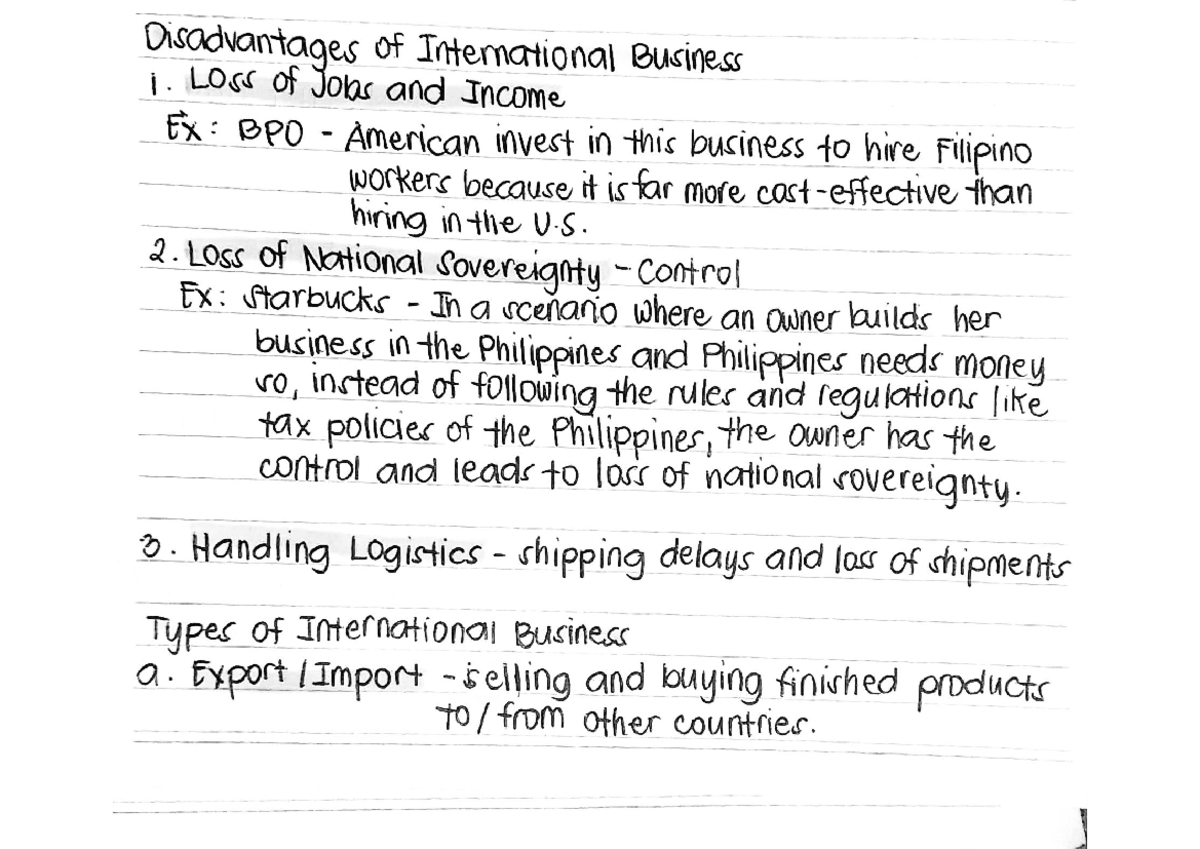 Disadvantages of International Business
1. Loss of Jobs and Income
Ex: BPO - American invest in this business to hire Filipino
workers because it is far more cost-effective than
hiring in the U.S.
2. Loss of National Sovereignty - Control
Ex: Starbucks - In a scenario where an owner builds her
business in the Philippines and Philippines needs money
so, instead of following the rules and regulations like
tax policies of the Philippines, the owner has the
control and leads to loss of national sovereignty.
3. Handling Logistics - shipping delays and loss of shipments
Types of International Business
a. Export / Import - selling and buying finished products
to / from other countries.